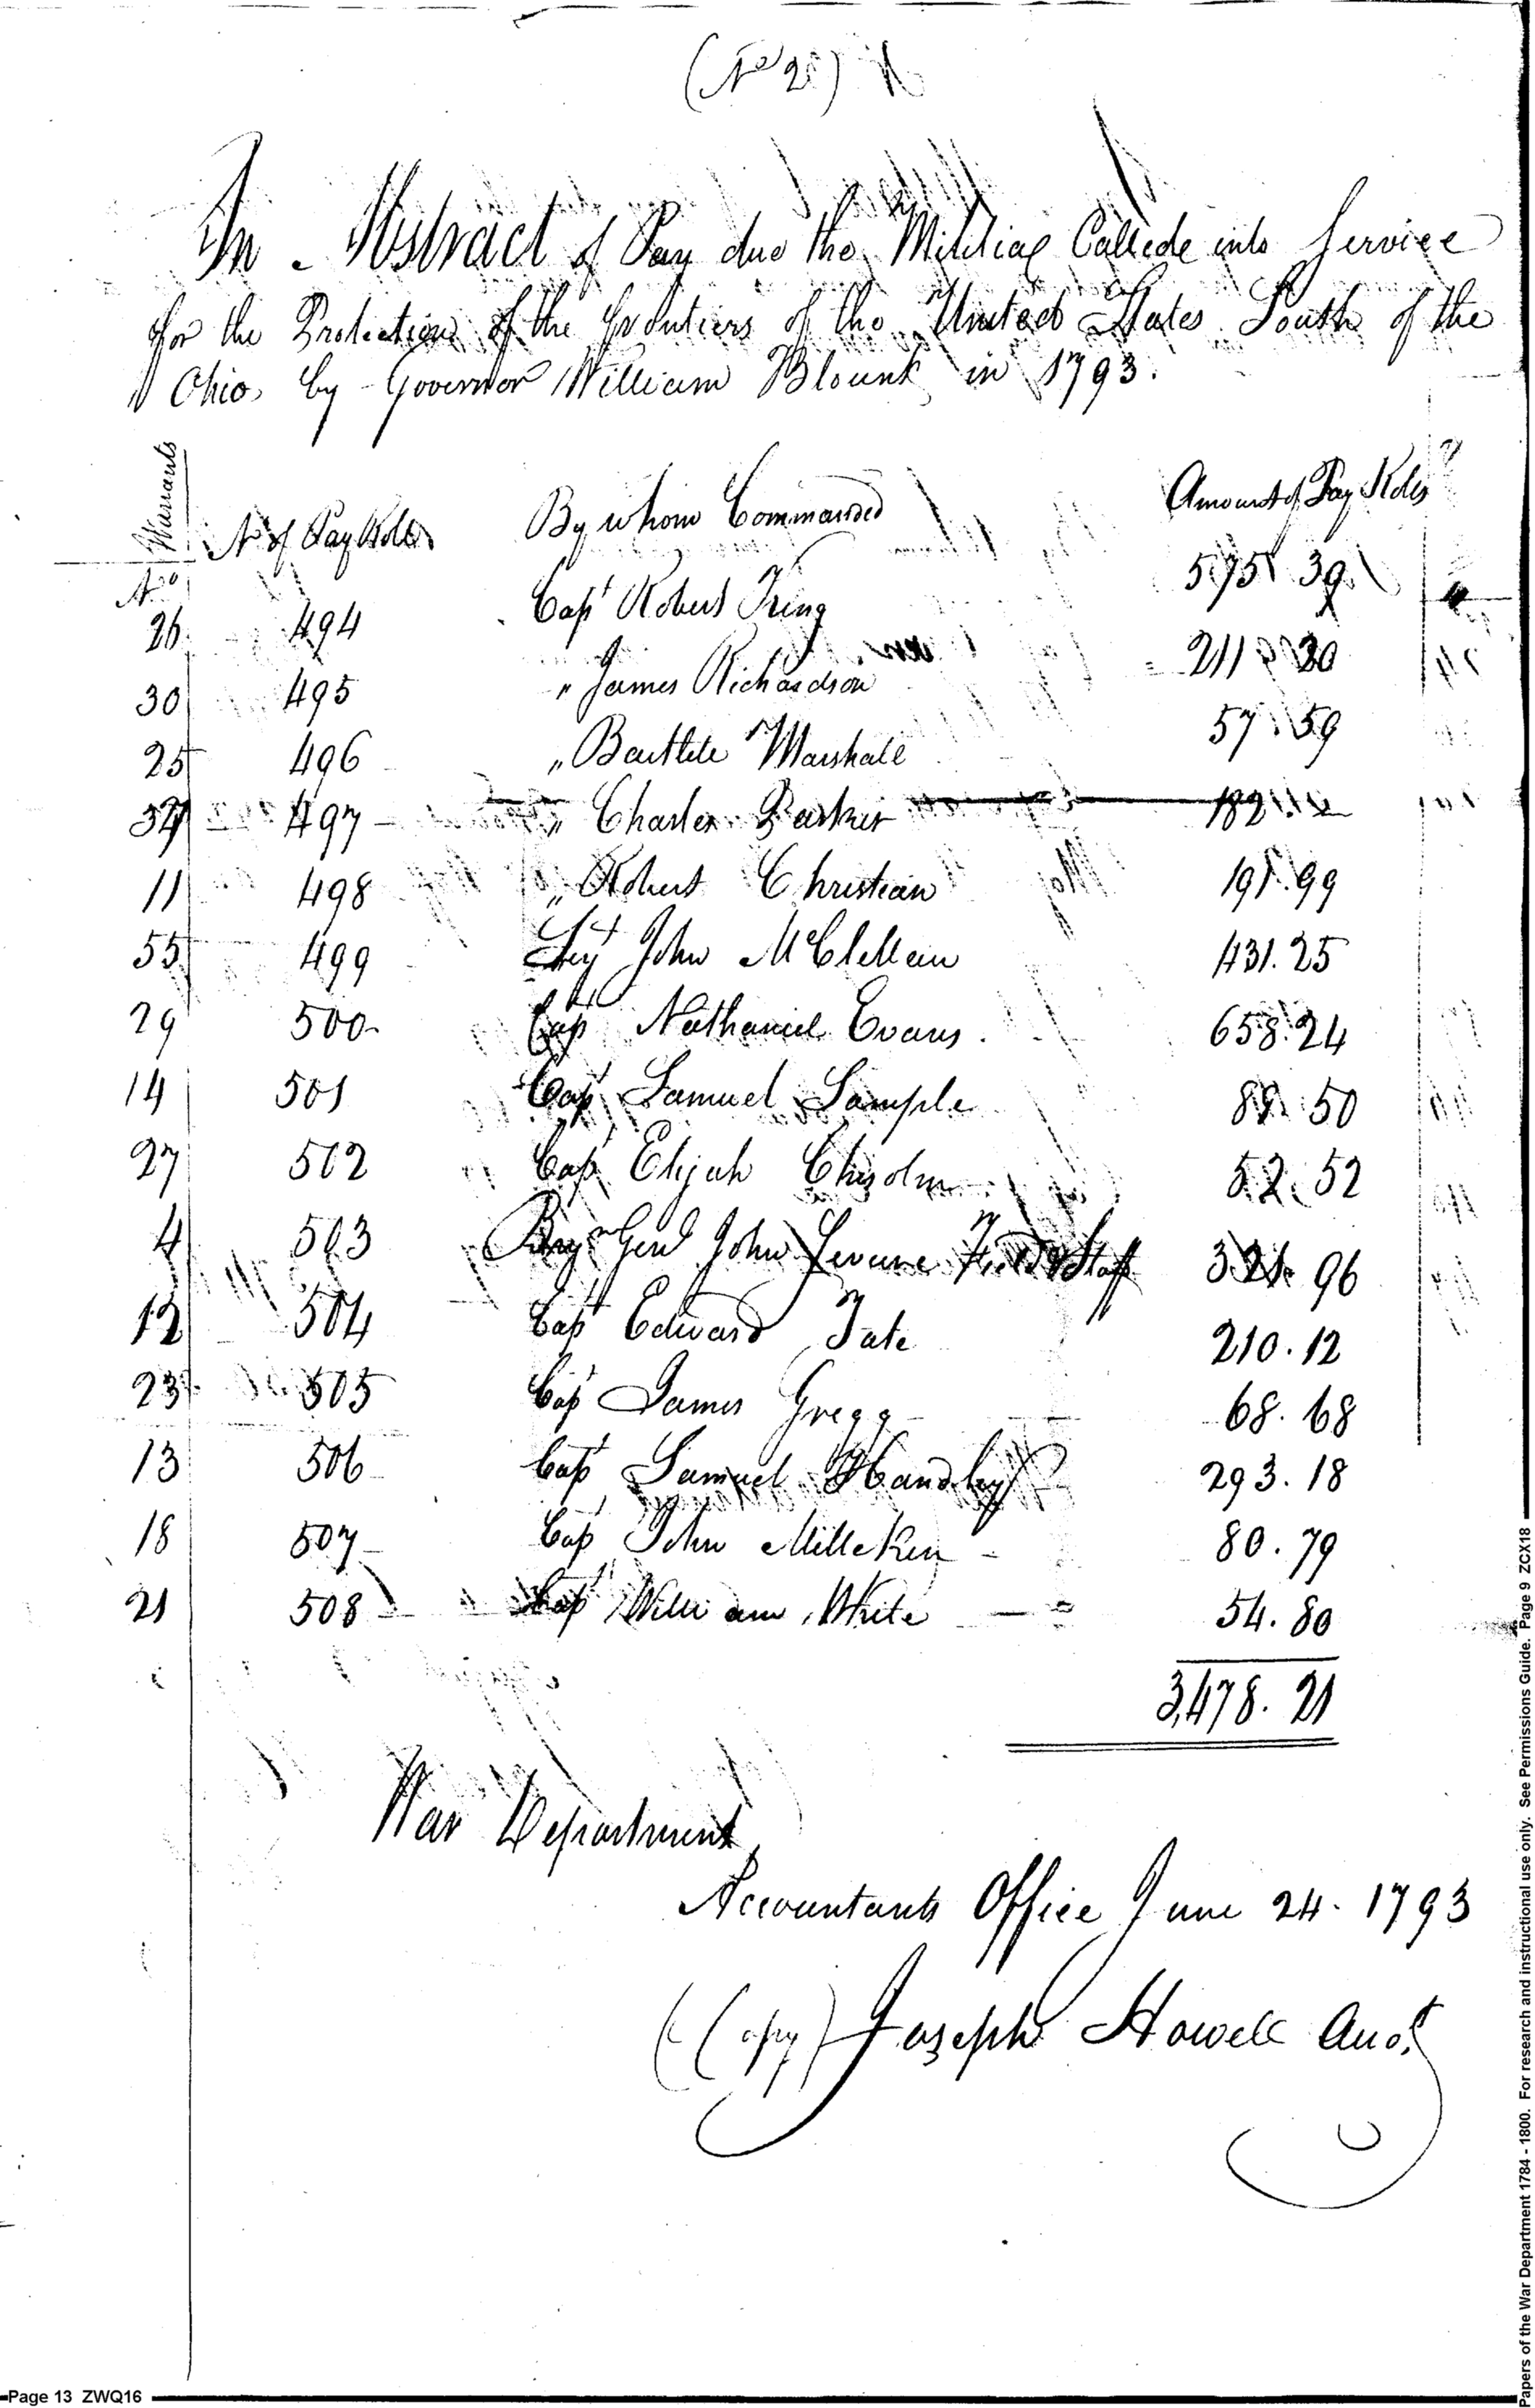 (No 2 )
An Abstract of Pay due the Militia Callede into Service
for the Protection of the frontiers of the United States South of the
Ohio, by Governor William Blount in 1793.
Warrants
No
No of Pay Rolls By whom Commanded Amount of Pay Rolls
26 494 Capt Robert King 575 39
30 495 " James Richardson 211 30
25 496 " Bartlete Marshall 57 59
497 " Charles Parker 182
11 498 " Robert Christian 191.99
55 499 John McClellan 431.25
29 500 Capt Nathaniel Evans 658.24
14 501 Capt Samuel Sample 50
27 502 Capt Elijah Chisolm 52.52
4 503 Brigr Genl John Seviere Field & Staff 321. 96
12 504 Capt Edward Tate 210.12
23 505 Capt James Gregg 68.68
13 506 Capt Samuel Handley 293.18
18 507 Capt John Milleken 80.79
21 508 Capt William White 54.80
3,478.21
War Department,
Accountants Office June 24. 1793
(Copy) Joseph Howell
Page 13 ZWQ16
Papers of the War Department 1784 - 1800. For research and instructional use only. See Permissions Guide. Page 9 ZCX18